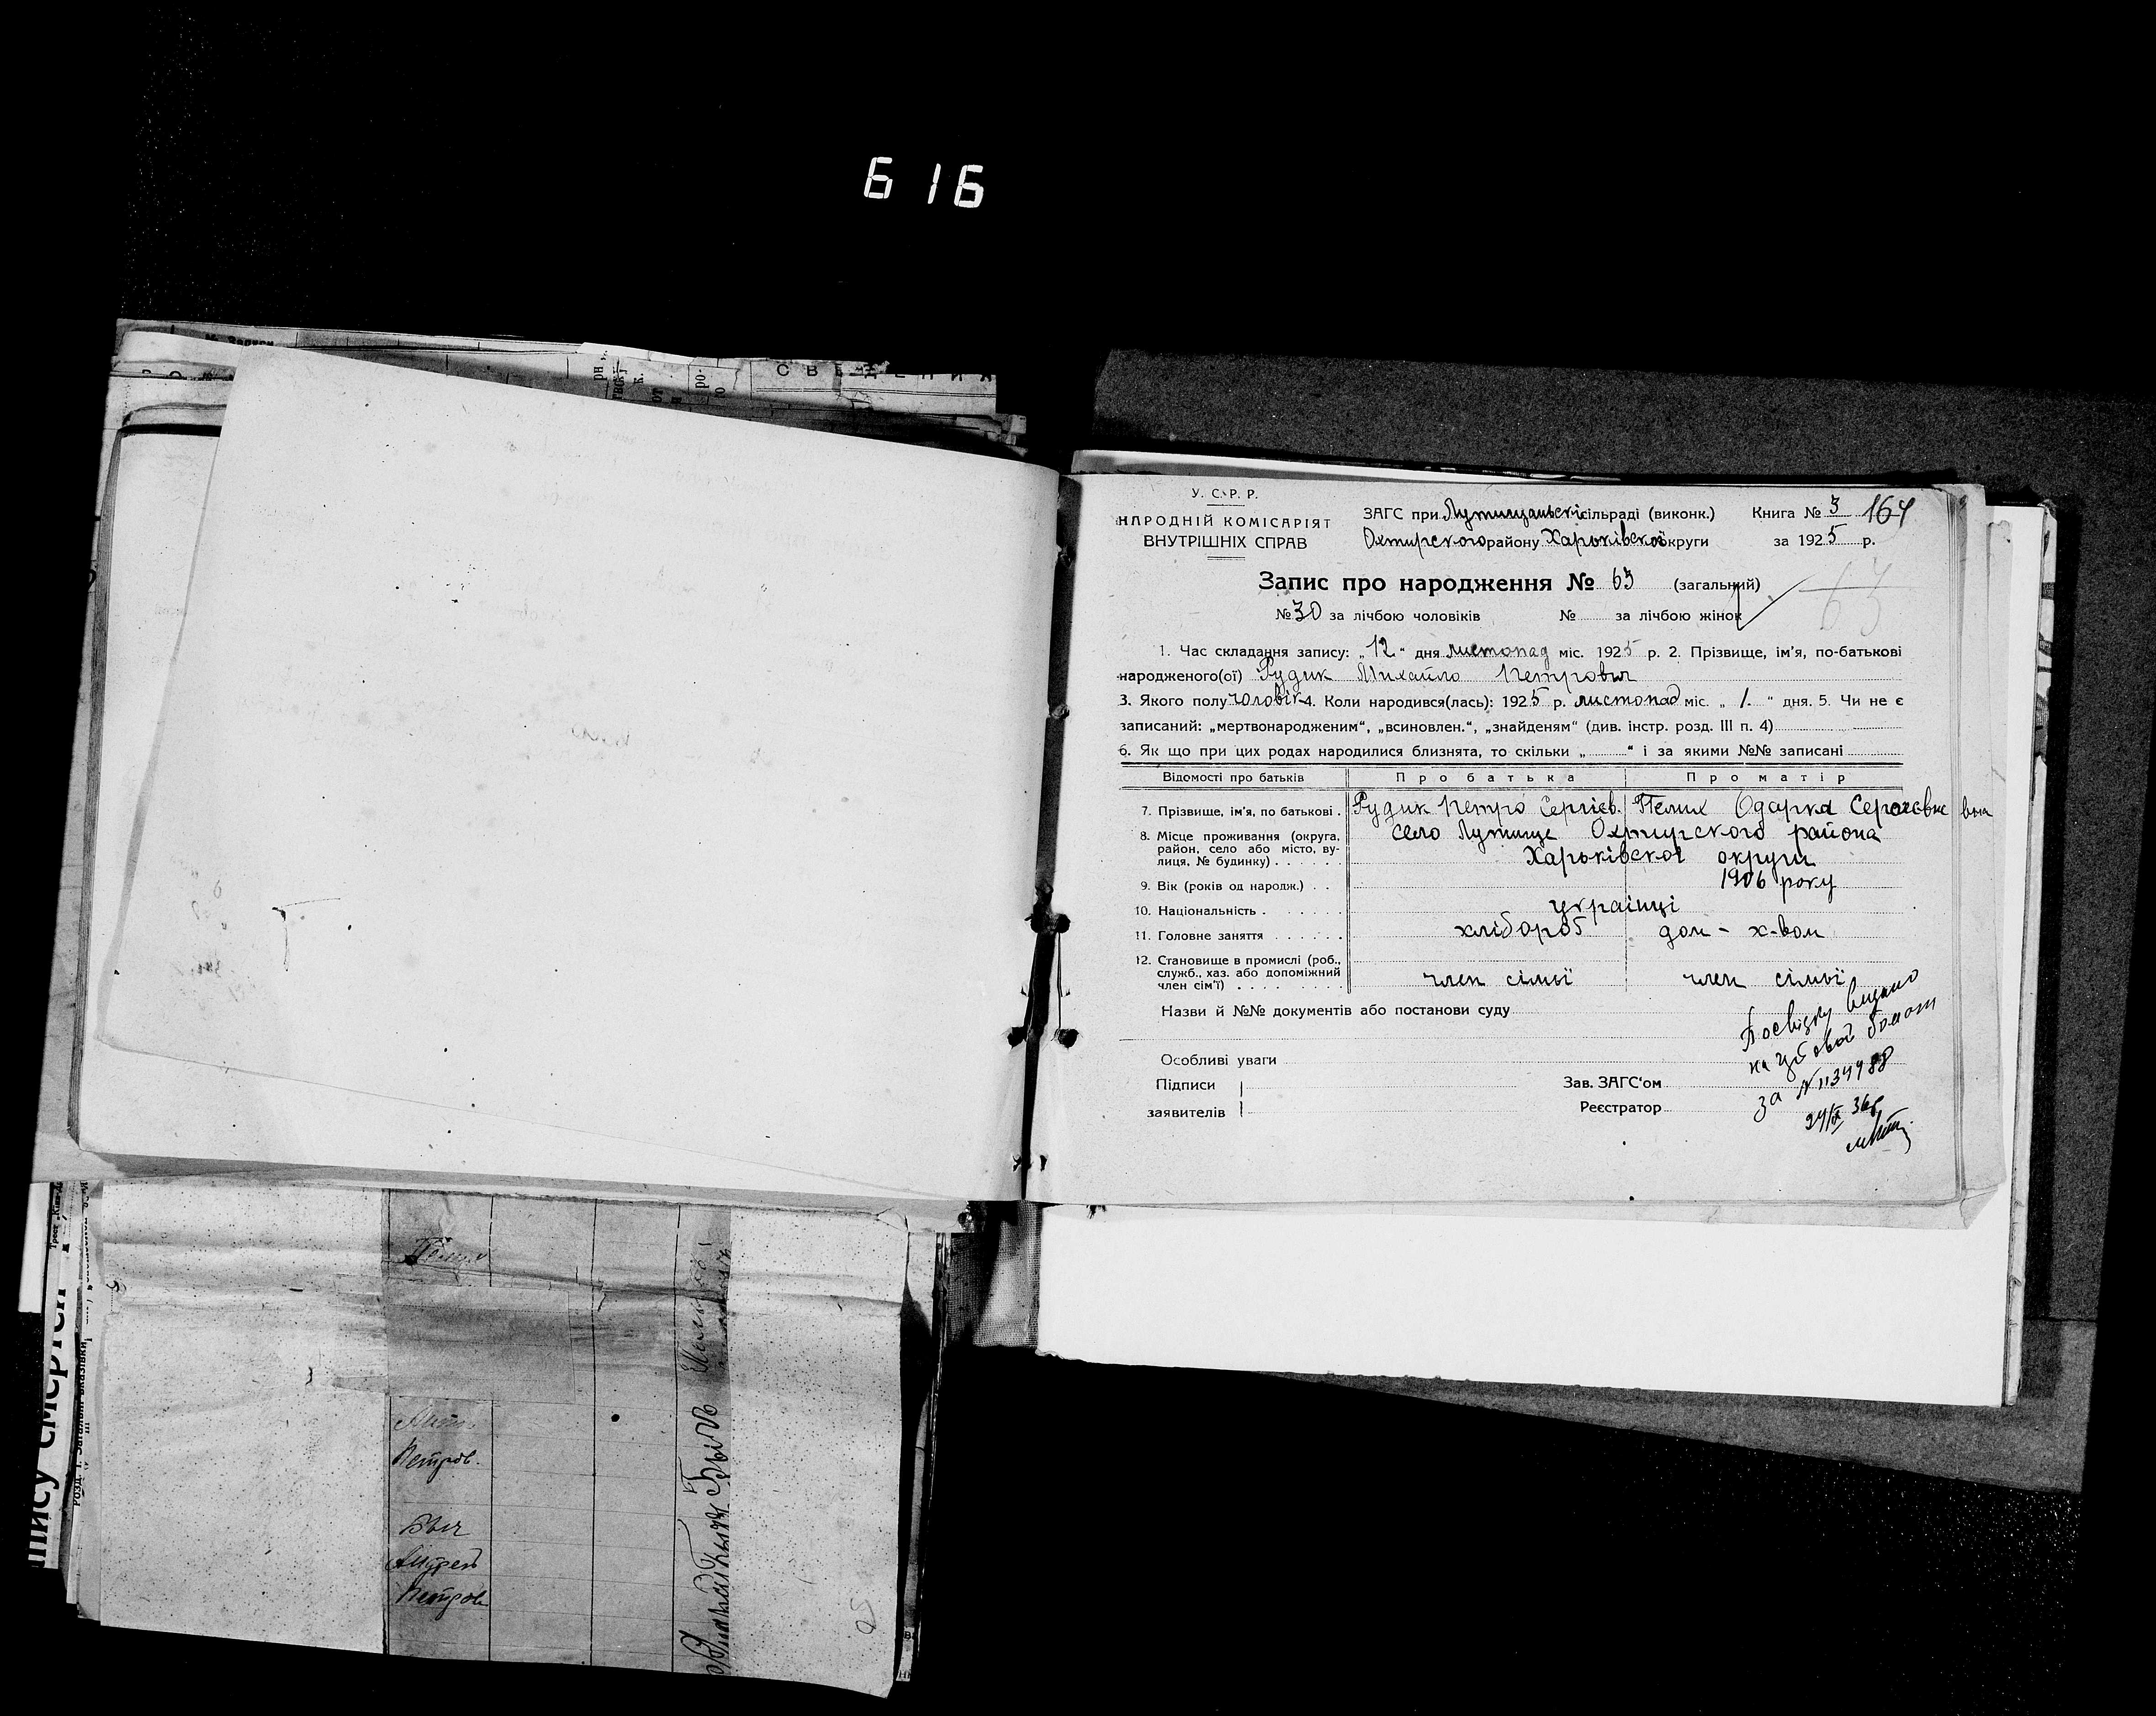 616
СВЕДЕНИЯ
У. С. Р. Р.
НАРОДНІЙ КОМІСАРІЯТ
ВНУТРІШНІХ СПРАВ
ЗАГС при Лутищанській сільраді (виконк.)
Охтирского району Харьківскої округи
Книга № 3 164
за 1925 р.
Запис про народження № 63 (загальний)
63
№ 30 за лічбою чоловіків № за лічбою жінок
1. Час складання запису: „12“ дня листопад міс. 1925 р. 2. Прізвище, ім'я, по-батькові
народженого(ої) Рудик Михайло Петрович
3. Якого полу чоловік 4. Коли народився(лась): 1925 р. листопад міс. „ 1. “ дня. 5. Чи не є
записаний: „мертвонародженим“, „всиновлен.“, „знайденям“ (див. інстр. розд. III п. 4)
6. Як що при цих родах народилися близнята, то скільки „ “ і за якими №№ записані
Відомості про батьків Про батька Про матір
7. Прізвище, ім'я, по батькові . Рудик Петро Сергієв. Пелих Одарка Сергаєвне
8. Місце проживання (округа, район, село або місто, ву-
лиця, № будинку) . . . . . .
село Лутище Охтирского района
Харьківскої округи
9. Вік (років од народж.) . . 1906 року
10. Національність . . . . . . українці
11. Головне заняття . . . . . . хлібороб дом - х-вом
12. Становище в промислі (роб.,
служб., хаз. або допоміжний
член сім'ї) . . . . . . . . . член сімьї член сімьї
Назви й №№ документів або постанови суду
Особливі уваги
Підписи
заявителів
Зав. ЗАГС'ом
Реєстратор
Посвідку видано
за № 1134988
24/IX 36р
Петров.
Андрей
Петров
пису смертей